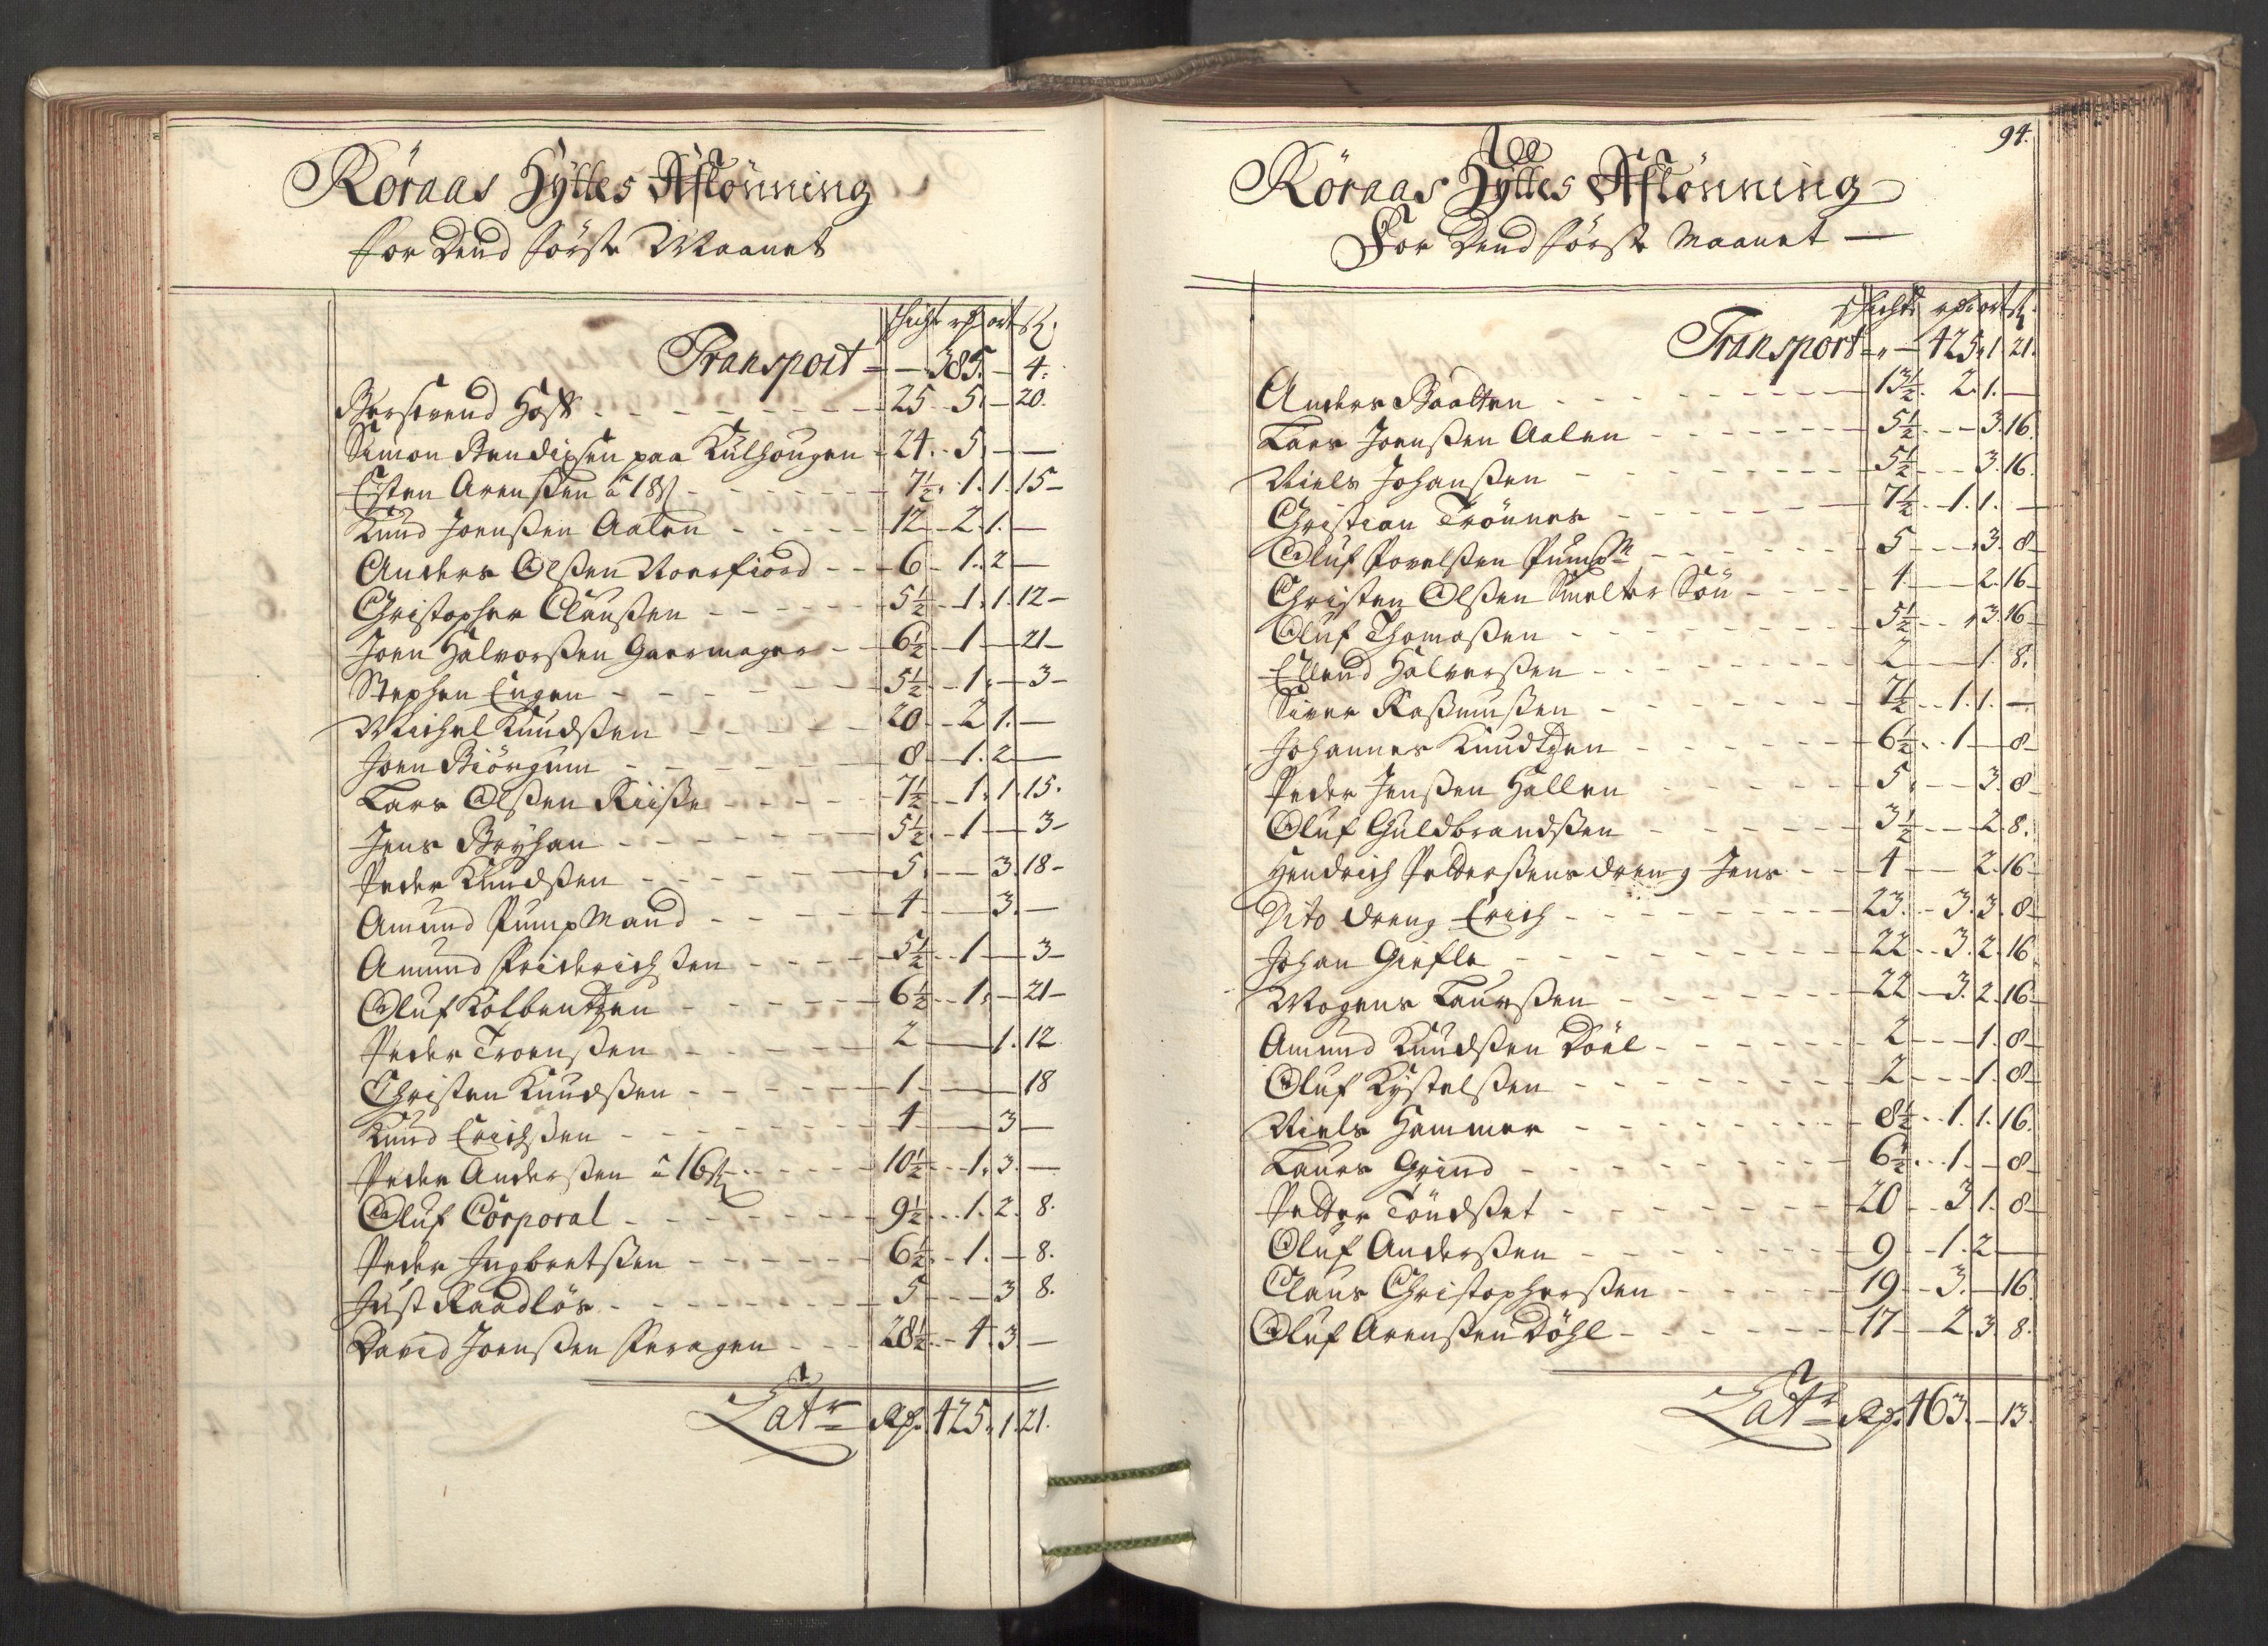 Röraas Hyttes Aflönning
for Dend förste Maanet
schicht rd ort s
Transport - - 385. - 4.
Berstvend Host - 25 - 5. - 20.
Simon Bendixsen paa Kulhougen - 24 - 5. - -
Esten Arensen a 18 s - 7½ - 1. 1. 15 -
Knud Joensen Aalen - 12 - 2. 1. -
Anders Olsen Noerfiord - 6 - 1. 2 -
Christopher Clausen - 5½ - 1. 1. 12 -
Joen Halvorsen Gaermager - 6½ - 1 - 21 -
Stephen Eugen - 5½ - 1. - 3 -
Michel Knudsen - 20 - 2. 1. -
Joen Biörgum - 8 - 1. 2 -
Lars Olsen Riise - 7½ - 1. 1. 15.
Jens Bryhan - 5½ - 1 - 3 -
Peder Knudsen - 5. - 3. 18 -
Amund Pumpmand - 4 - 3. -
Amund Friderichsen - 5½ - 1 - 3 -
Oluf Kolbentzen - 6½ - 1. - 21 -
Peder Troensen - 2 - 1. 12
Christen Knudsen - 1 - 18
Knud Erichsen - 4 - 3 -
Peder Andersen a 16 s - 10½ - 1. 3. -
Oluf Corporal - 9½ - 1. 2. 8.
Peder Ingbretsen - 6½ - 1. - 8.
Just Raadlös - 5 - 3. 8.
David Joensen Feragen - 28½ - 4. 3. -
Latr Rd. 425. 1. 21.
94.
Röraas Hyttes Aflönning
For Dend förste Maanet -
schicht rd ort s
Transport - - 425. 1. 21.
Anders Baatten - 13½. 2. 1. -
Lars Joensen Aalen - 5½ - 3. 16.
Niels Johansen - 5½ - 3. 16.
Christian Trönnes - 7½ - 1. 1. -
Oluf Povelsen Pumpm - 5 - 3. 8 -
Christen Olsen Smelter Sön - 4 - 2. 16 -
Oluf Thomasen - 5½ - 3. 16 -
Ellend Halvorsen - 2 - 1. 8.
Siver Rasmusen - 7½ - 1. 1. -
Johannes Knudtzen - 6½ - 1 - 8 -
Peder Jensen Hallen - 5. - 3. 8 -
Oluf Guldbrandsen - 3½ - 2. 8.
Hendrich Pettersens dreng Jens - 4 - 2. 16 -
Dito dreng Erich - 23. - 3. 3. 8 -
Johan Giefle - 22 - 3. 2. 16.
Mogens Laursen - 22 - 3. 2. 16 -
Amund Knudsen Döel - 2 - 1. 8 -
Oluf Kystelsen - 2 - 1. 8 -
Niels Hammer - 8½ - 1. 1. 16.
Laurs Grind - 6½ - 1. - 8 -
Petter Töndset - 20 - 3. 1. 8 -
Oluf Andersen - 9 - 1. 2 -
Claus Christophersen - 19 - 3. - 16.
Oluf Arensen Döhl - 17 - 2. 3. 8.
Latr Rd. 463. - 13.